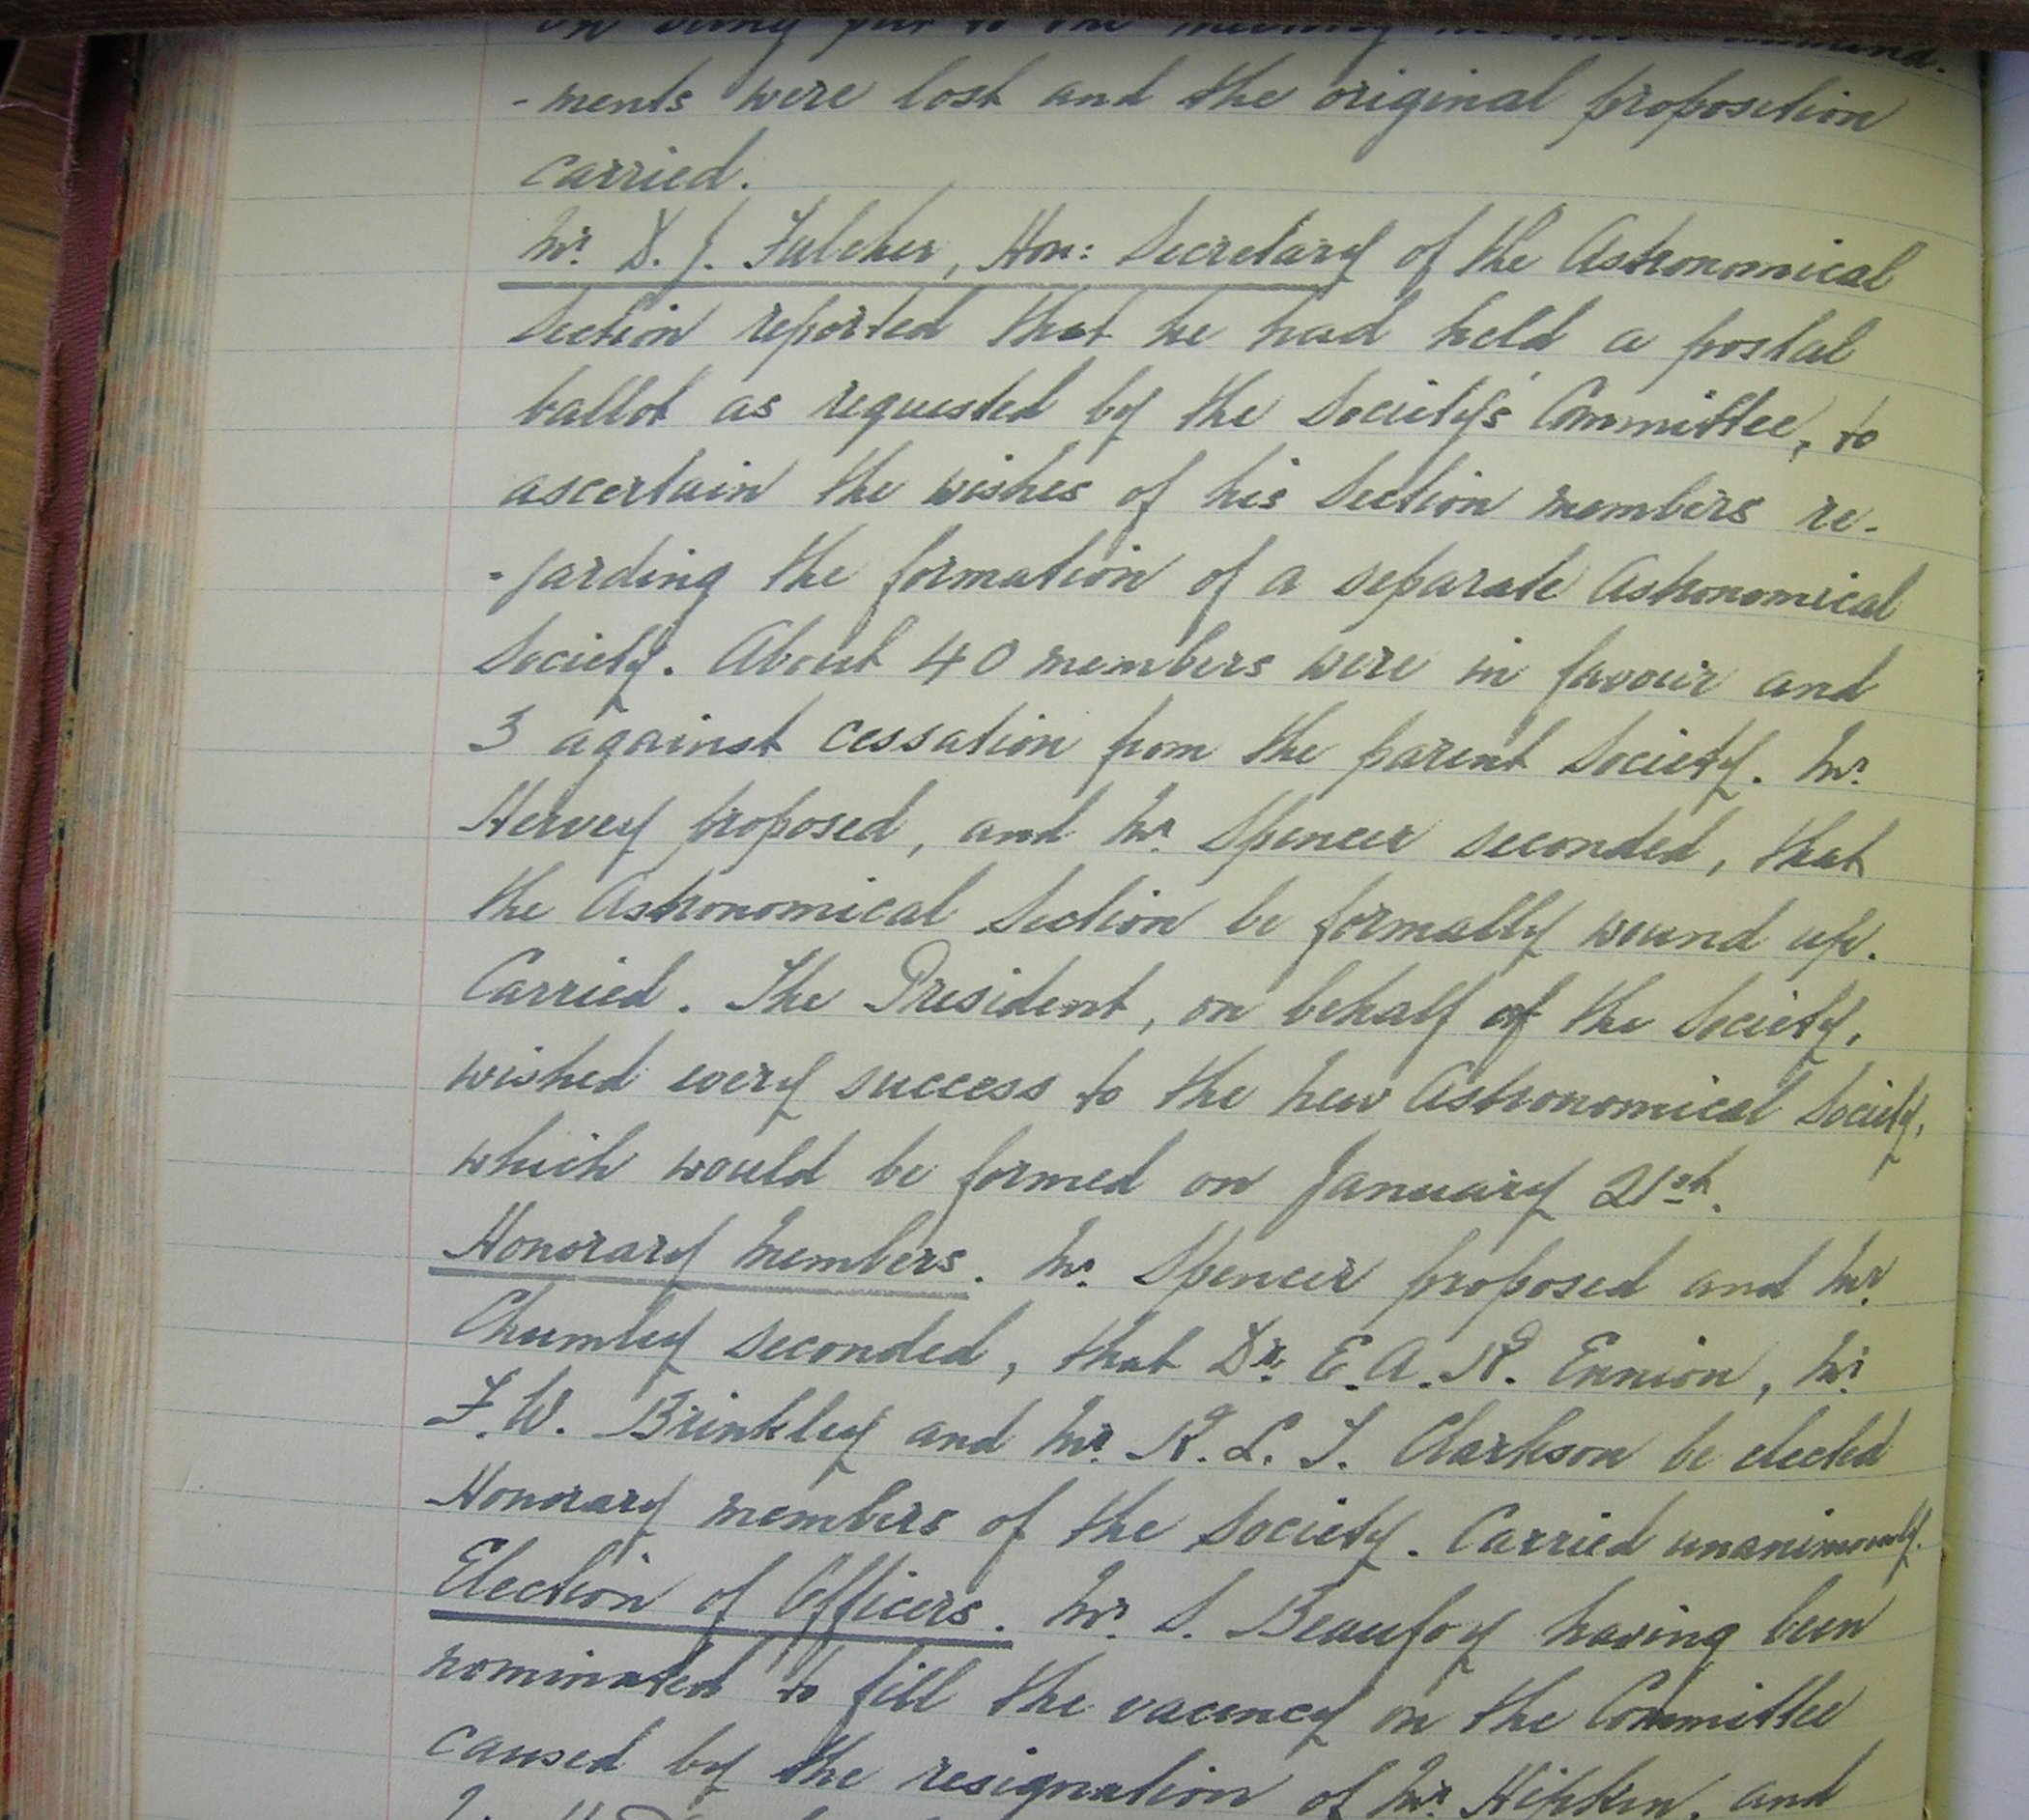 on being put to the meeting
-ments were lost and the original proposition
carried.
Mr. D. J. Fulcher, Hon: Secretary of the Astronomical
Section reported that he had held a postal
ballot as requested by the Society's Committee, to
ascertain the wishes of his Section members re-
-garding the formation of a separate Astronomical
Society. About 40 members were in favour and
3 against cessation from the parent Society. Mr.
Hervey proposed, and Mr. Spencer seconded, that
the Astronomical Section be formally wound up.
Carried. The President, on behalf of the Society,
wished every success to the new Astronomical Society,
which would be formed on January 21st.
Honorary Members. Mr. Spencer proposed and Mr.
Chumley seconded, that Dr. E. A. R. Ennion, Mr.
F. W. Brinkley and Mr. R. L. T. Clarkson be elected
Honorary members of the Society. Carried unanimously.
Election of Officers. Mr. S. Beaufoy having been
nominated to fill the vacancy on the Committee
caused by the resignation of Mr. Hipkin, and